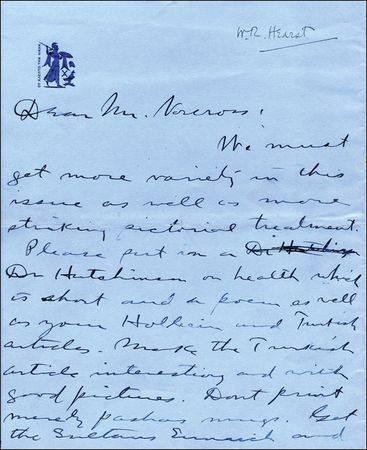 W.R. Hearst
Dear Mr. Norcross:
We must
get more variety in this
issue as well as more
striking pictorial treatment.
Please put in a
Dr Hutchinson on health which
is short and a poem as well
as your Holbein and Turkish
articles. Make the Turkish
article interesting and with
good pictures. Dont print
merely pashas mugs. Get
the Sultans Eunuch and